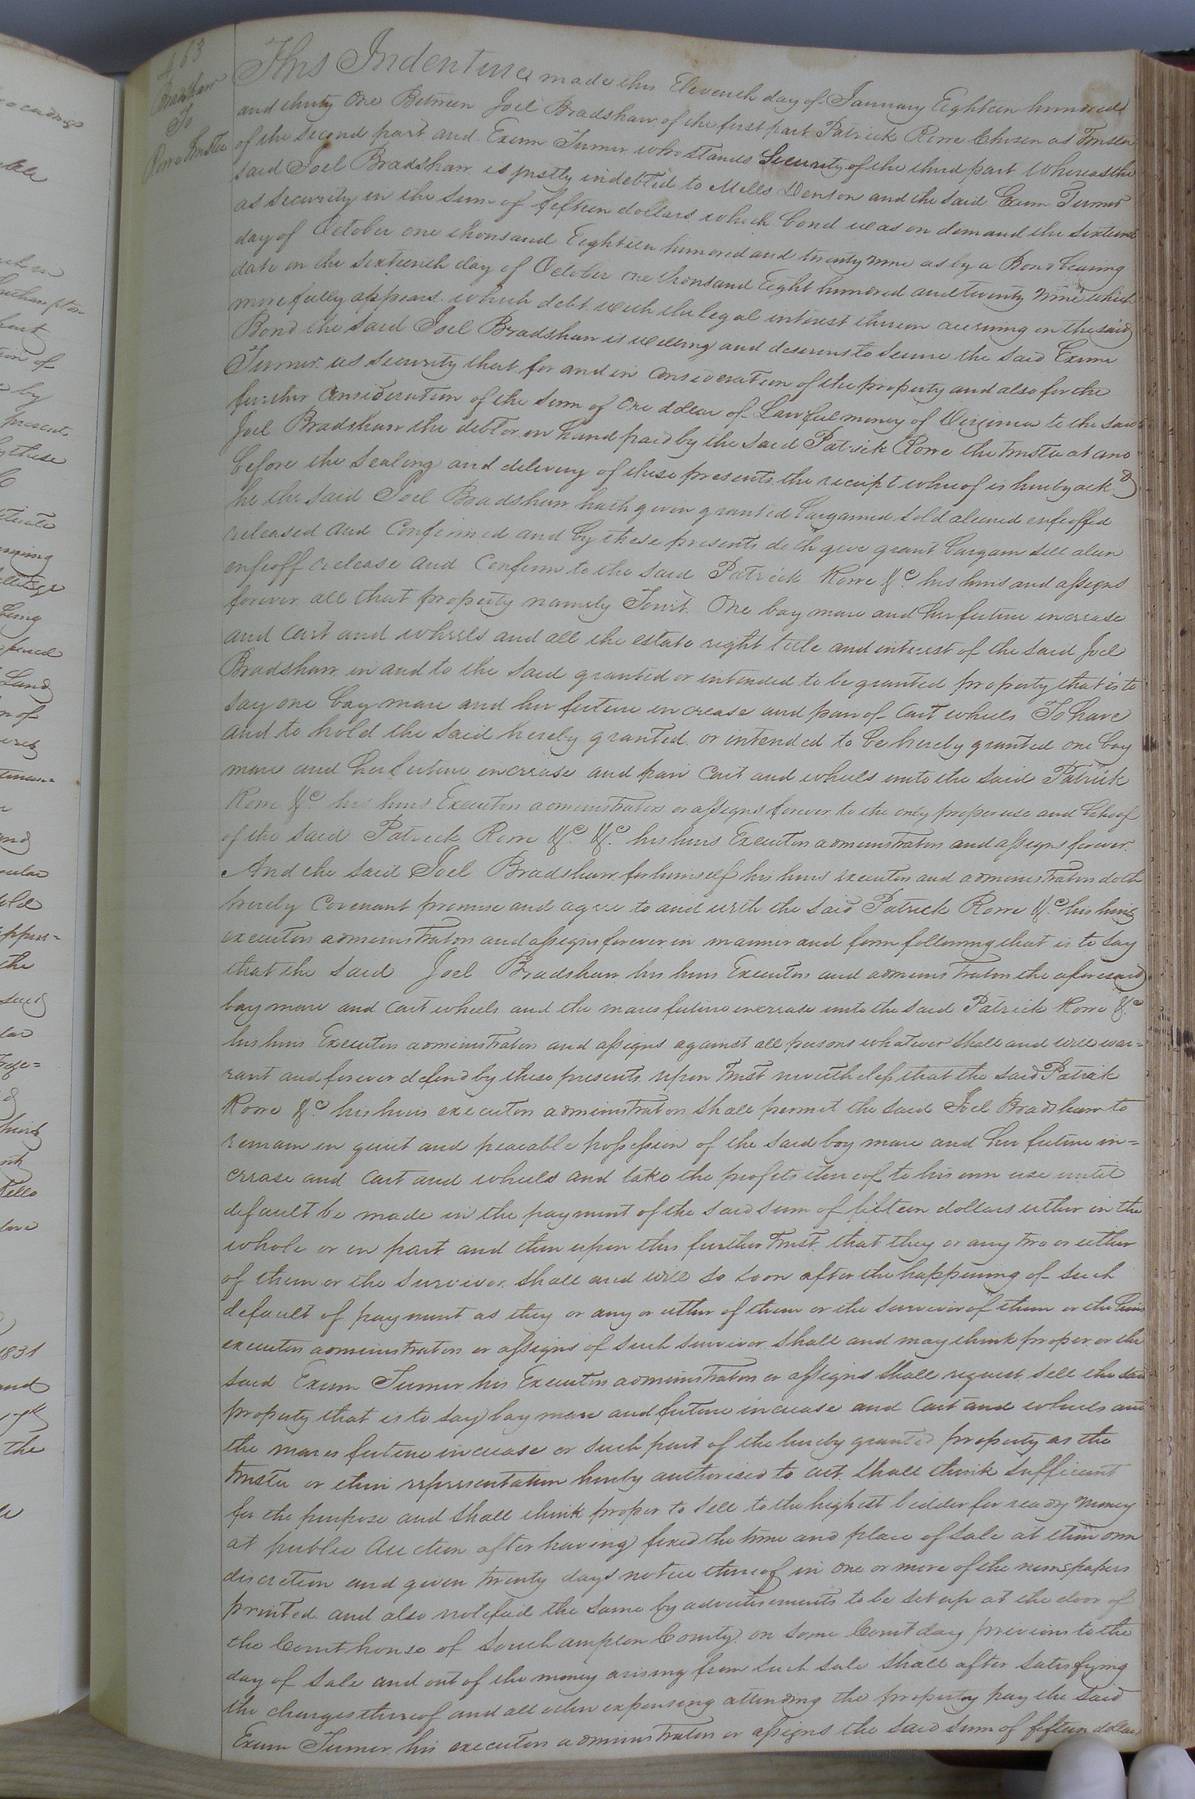 463
Bradshaw
To
Rowe Trustee
This Indenture made this Eleventh day of January Eighteen hundred
and thirty One Between Joel Bradshaw of the first part Patrick Rowe Chosen as Trustee
of the second part and Exum Turner who stands Security of the third part Whereas the
said Joel Bradshaw is justly indebted to Mills Denson and the said Exum Turner
as security in the sum of fifteen dollars which bond was on demand the sixteenth
day of October one thousand Eighteen hundred and twenty nine as by a Bond bearing
date on the sixteenth day of October one thousand Eight hundred and twenty nine which
more fully appears which debt with the legal interest thereon accruing on the said
Bond the said Joel Bradshaw is willing and desirous to secure the said Exum
Turner as security that for and in Consideration of the property and also for the
further Consideration of the sum of One dollar of Lawful money of Virginia to the said
Joel Bradshaw the debtor in hand paid by the said Patrick Rowe the trustee at and
before the sealing and delivery of these presents the receipt whereof is hereby ack.d
he the said Joel Bradshaw hath given granted bargained sold aliened enfeoffed
released and Confirmed and by these presents doth give grant bargain sell alien
enfeoff release and Confirm to the said Patrick Rowe &c. his heirs and assigns
forever all that property namely Towit. One bay mare and her future increase
and Cart and wheels and all the estate right title and interest of the said Joel
Bradshaw in and to the said granted or intended to be granted property that is to
say one bay mare and her future increase and pair of Cart wheels To have
and to hold the said hereby granted or intended to be hereby granted one bay
mare and her future increase and pair Cart and wheels unto the said Patrick
Rowe &c his heirs Executors administrators or assigns forever to the only proper use and behoof
of the said Patrick Rowe &c. &c. his heirs Executors administrators and assigns forever.
And the said Joel Bradshaw for himself his heirs executors and administrators doth
hereby Covenant promise and agree to and with the said Patrick Rowe &c his heirs
executors administrators and assigns forever in manner and form following that is to say
that the said Joel Bradshaw his heirs Executors and administrators the aforesaid
bay mare and Cart wheels and the mares future increase unto the said Patrick Rowe &c
his heirs Executors administrators and assigns against all persons whatever Shall and will war=
rant and forever defend by these presents upon Trust nevertheless that the said Patrick
Rowe &c his heirs executors administrators shall permit the said Joel Bradshaw to
remain in quiet and peacable possession of the said bay mare and her future in=
crease and Cart and wheels and take the profits thereof to his own use until
default be made in the payment of the said sum of fifteen dollars either in the
whole or in part and then upon this further Trust that they or any two or either
of them or the survivor shall and will so soon after the happening of such
default of payment as they or any or either of them or the survivor of them or the heirs
executors administrators or assigns of such survivor shall and may think proper or the
said Exum Turner his Executors administrators or assigns shall request sell the said
property that is to say bay mare and future increase and Cart and wheels and
the mares future increase or such part of the hereby granted property as the
trustee or their representation hereby authorised to act shall think sufficient
for the purpose and shall think proper to sell to the highest bidder for ready money
at public Auction after having fixed the time and place of sale at their own
discretion and given twenty days notice thereof in one or more of the newspapers
printed and also notifid the same by advertisements to be set up at the door of
the Court house of Southampton County on some Court day previous to the
day of sale and out of the money arising from such sale shall after satisfying
the charges thereof and all other expensing attending the property pay the said
Exum Turner his executors administrators or assigns the said sum of fifteen dollars